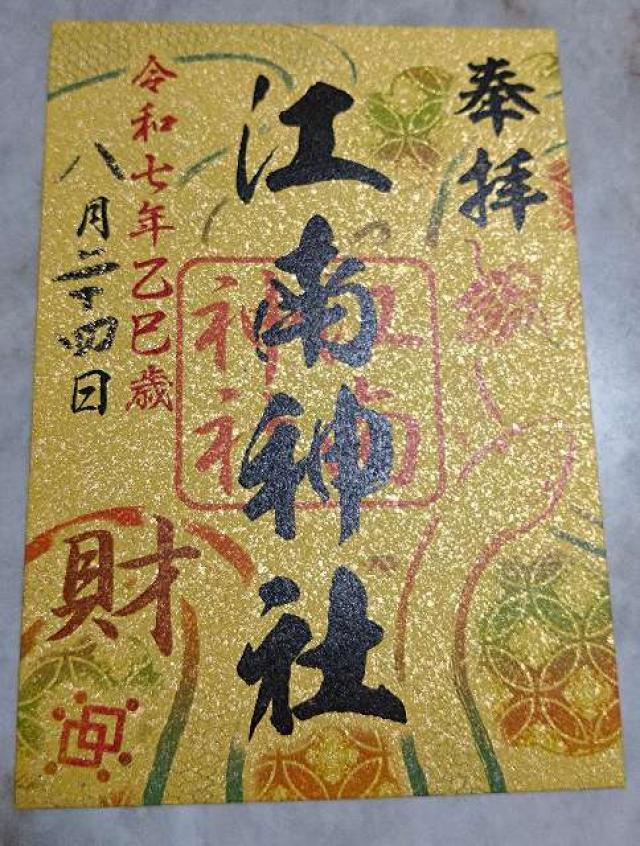 奉拝
江南神社
江南
神社
令和七年乙巳歳
八月二十四日
財